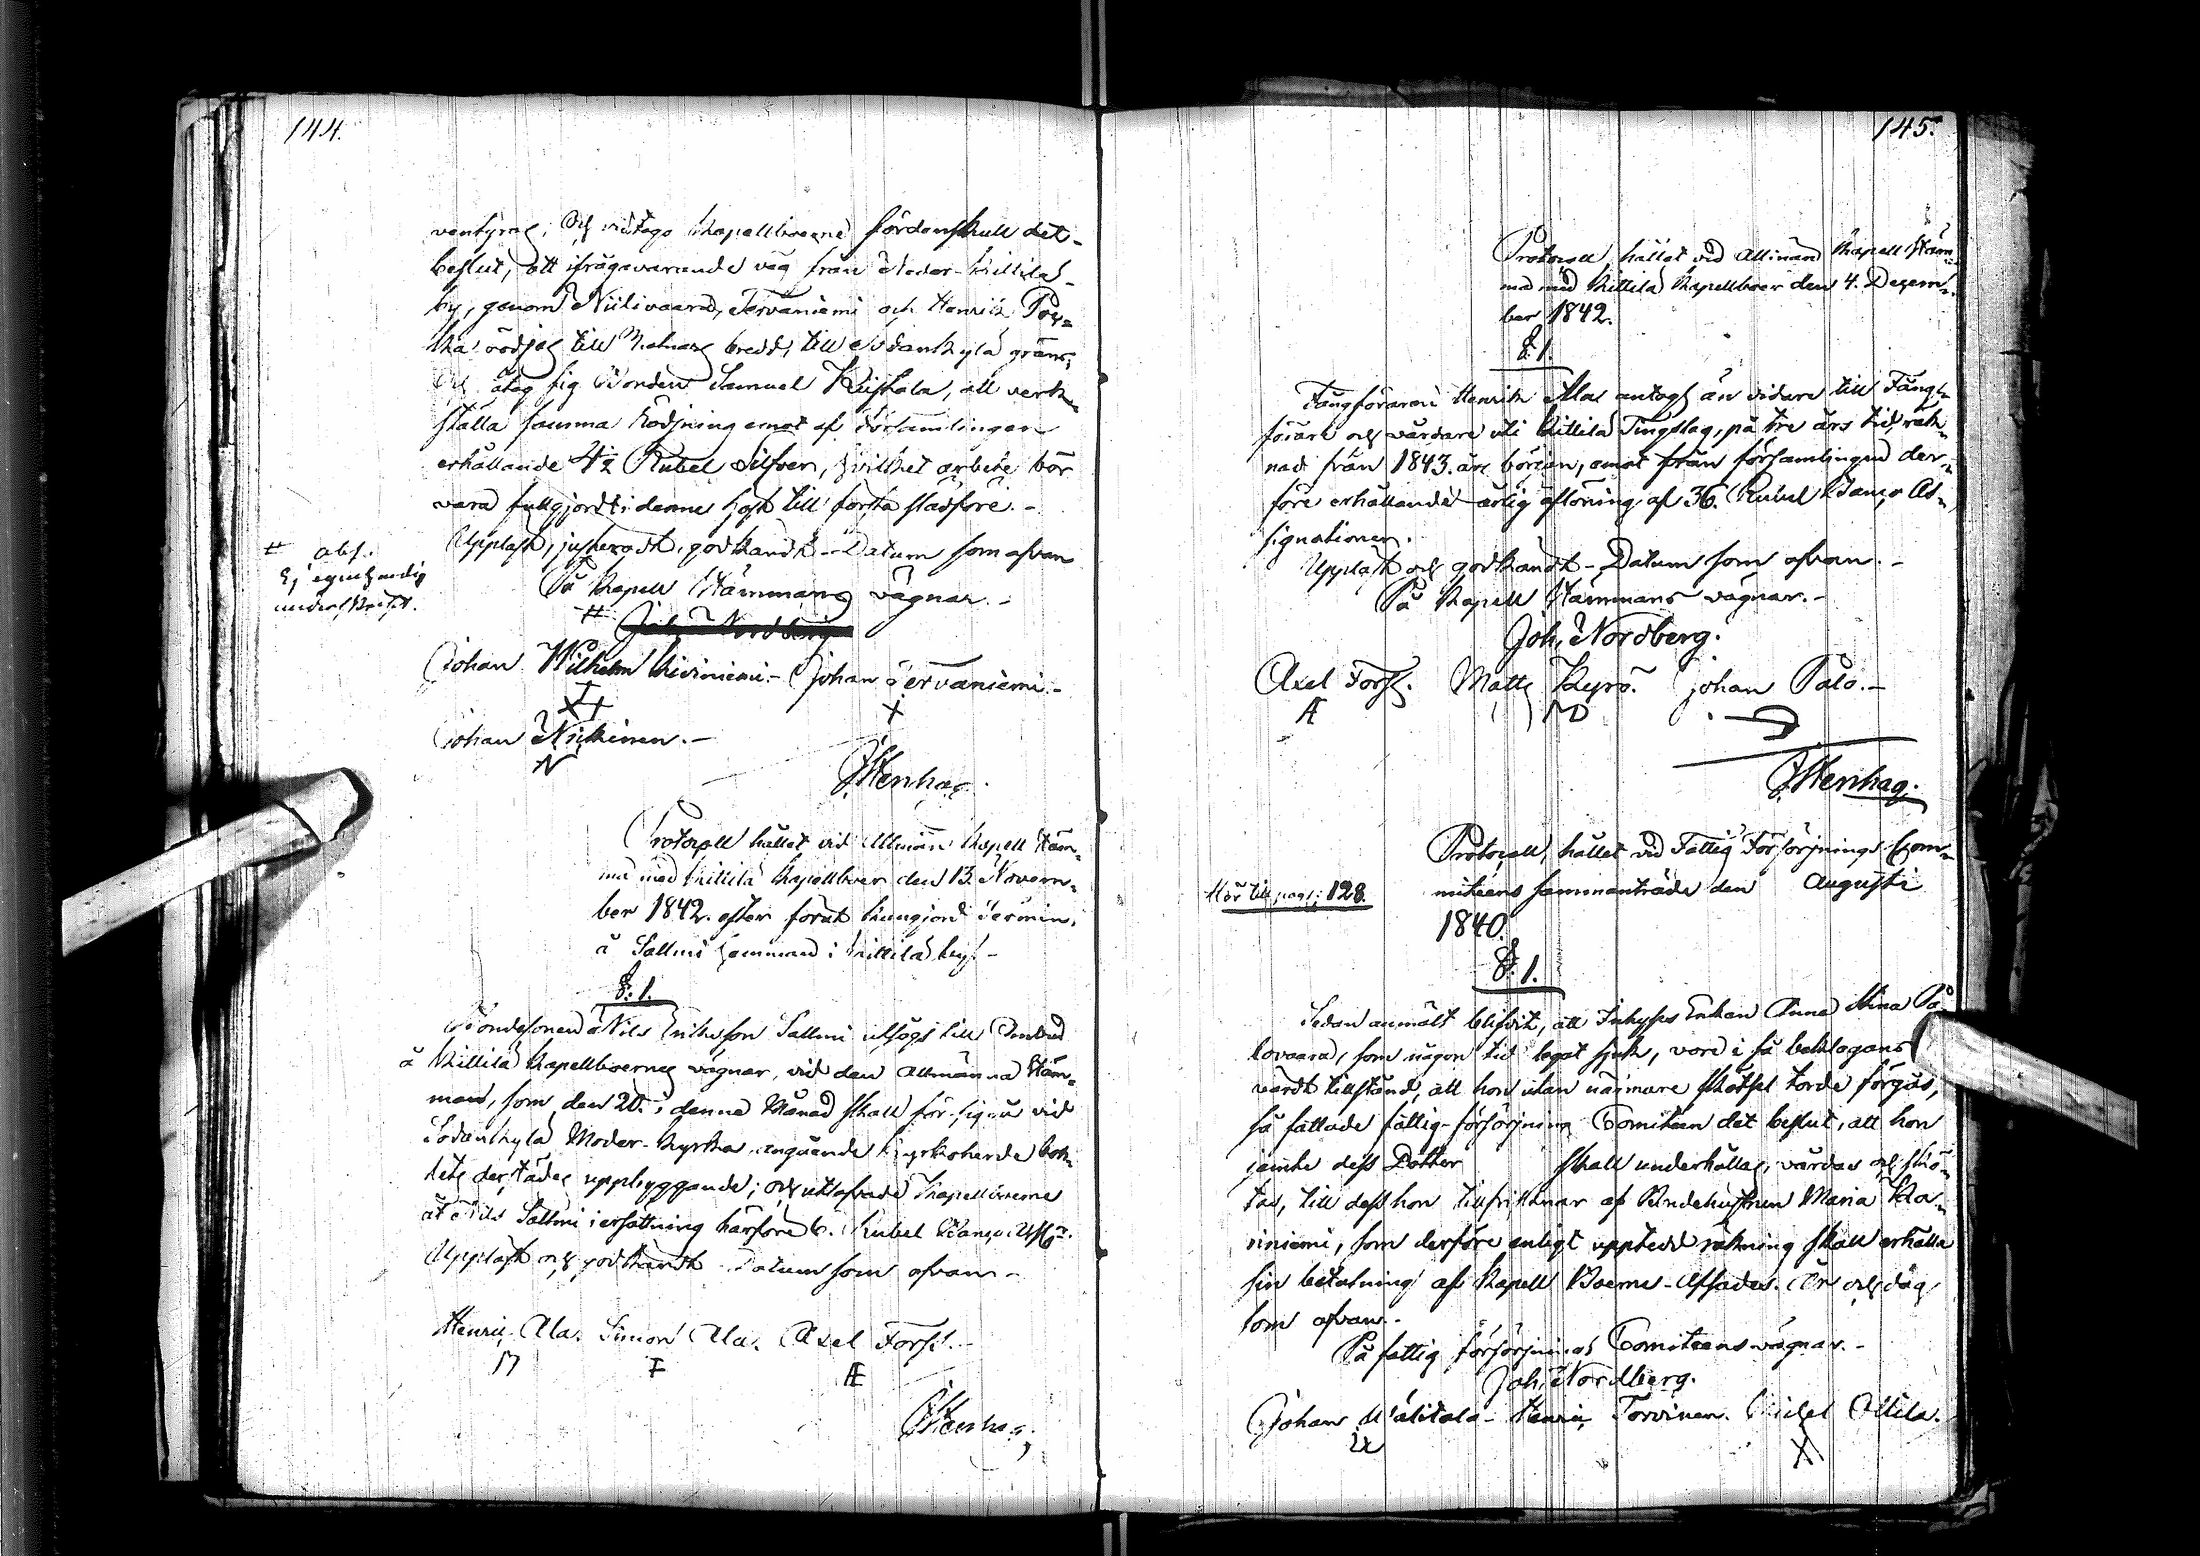 144.
ventyras; Och vidtogo Kapellboerne fördenskull det
beslut, att ifrågavarande väg från Neder-Kittilä
by, genom Niilivaara, Tervaniemi och Henrik
ka rödjas till bredd, till Sodankylä gräns;
Och åtog sig Bonden Samuel Kuiskala, att verk-
ställa samma Rödjning emot af Församlingen
erhållande 4½ Rubel Silfver, hvilket arbete bör
vara fullgjordt i denne höst till första slädföre.-
Uppläst, justeradt, godkändt - Datum som ofvan
På Kapell Stämmans vägnar.-
# Joh. Nordberg
# obs.
Ej egenhändig
underskrift.
Johan Wilhelm Kiviniemi.- Johan Tervaniemi.-
X
Johan Niskinen.-
N
Stenhag.
Protocoll hållet vid Allmän Kapell Stäm-
ma med Kittilä Kapellboer den 13. Novem-
ber 1842. efter förut kungjord Termin,
å Sallmi hemman i Kittilä by.-
§. 1.
Bondesonen Nils Eriksson Sallmi utsågs till Ombud
å Kittilä Kapellboernes vägnar, vid den Allmänna Stäm-
man, som den 20. i denna Månad skall för sig gå vid
Sodankylä Moder-Kyrka, angående Kyrkoherde bo-
lets derstädes uppbyggande; och utlofvade Kapellboerne
åt Nils Sallmi i ersättning härföre 6. Rubel Banco
Uppläst och godkändt - Datum som ofvan -
Henric Ala. Simon Ala. Axel Forss.-
M I Æ
Stenhag.
145.
Protocoll, hållet vid Allmän Kapell Stäm-
ma med Kittilä Kapellboer den 4. Decem-
ber 1842.
§. 1.
Fångföraren Henrik Ala antogs än vidare till Fång-
förare och vårdare uti Kittilä Tingslag, på tre års tid, räk-
nad från 1843. års början, emot från församlingen der-
före erhållande årlig aflöning af 36. Rubel Banco As-
signationer.
Uppläst och godkändt - Datum som ofvan.-
På Kapell Stämmans vägnar.-
Joh. Nordberg.
Axel Forss. Matts Kyrö. Johan Palo.-
Æ
Stenhag.
Protocoll, hållet vid Fattig Försörjnings Com-
miteens sammanträde den Augusti
1840.
Hör till pag: 128.
§. 1.
Sedan anmält blifvit, att Inhyses Enkan Anna Stina Pa-
lovaara, som någon tid legat sjuk, vore i så beklagans
värdt tillstånd, att hon utan närmare skötsel torde förgås,
så fattade fattig-försörjning Comiteen det beslut, att hon
jämte dess Dotter skall underhållas, vårdas och skö-
tas, till dess hon tillfrisknar af Bondehustrun Maria
riniemi, som derföre enligt uppteed räkning skall erhålla
sin betalning af Kapell Boerne-Cassan. År och dag
som ofvan.-
På fattig försörjnings Comiteens vägnar.-
Joh. Nordberg.
Johan Wälitalo- Henric Torvinen. Michel Ollila.